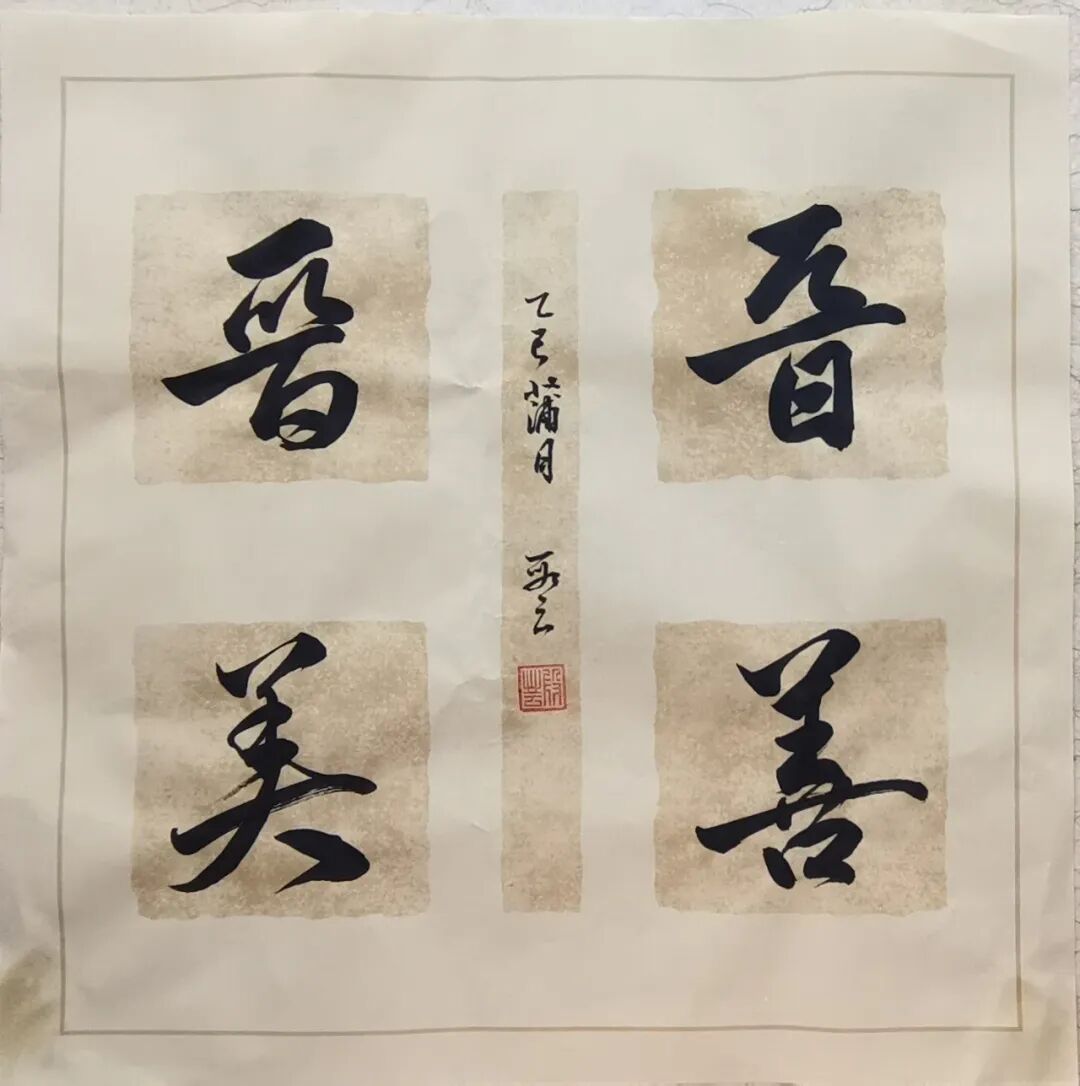 晋善
晋美
乙巳蒲月
云